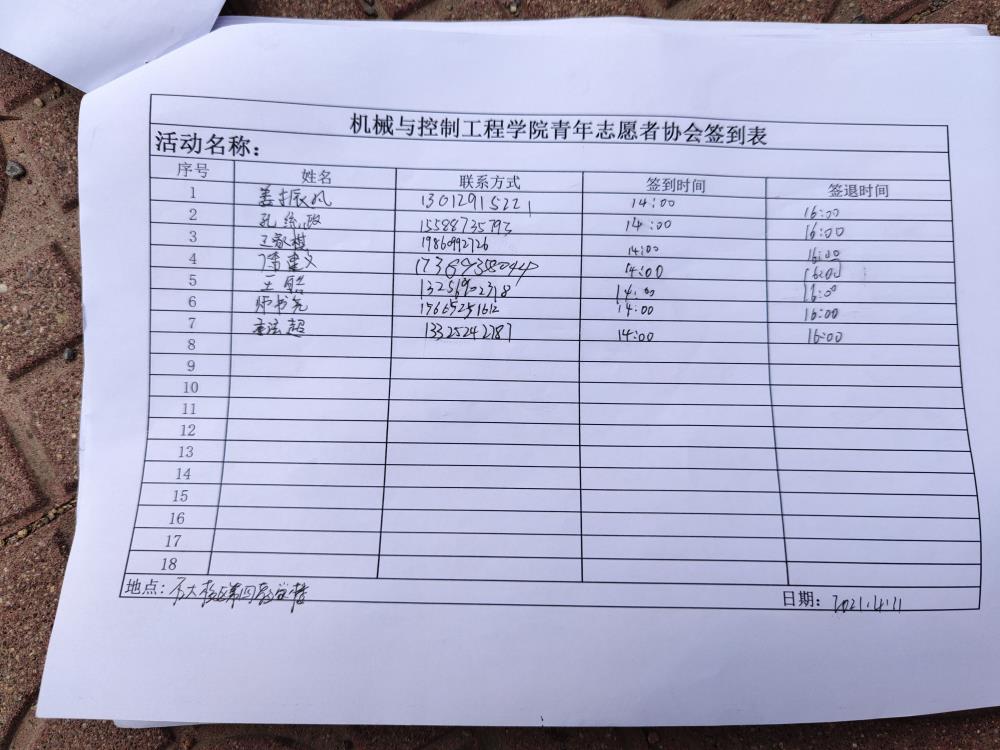 机械与控制工程学院青年志愿者协会签到表
活动名称：
序号 姓名 联系方式 签到时间 签退时间
1 姜振风 13012915221 14:00 16:00
2 孔 15588735793 14:00 16:00
3 王家棋 19860992726 14:00 16:00
4 潘建文 14:00 16:00
5 王 13256902318 14:00 16:00
6 师书尧 17665251612 14:00 16:00
7 超 13325242787 14:00 16:00
8
9
10
11
12
13
14
15
16
17
18
地点：石大校区第四教学楼
日期：2021.4.11